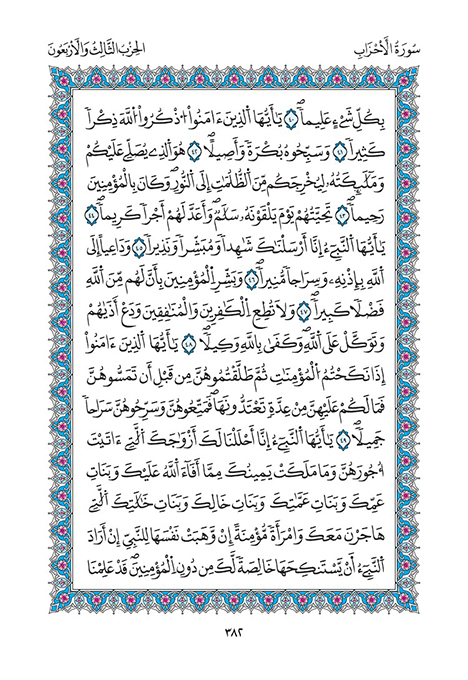 سُورَةُ الْأَحْزَابِ
الحِزْبُ الثَّالِثُ وَالْأَرْبَعُونَ
بِكُلِّ شَےْءٍ عَلِيماًۖ ٤٠ يَٰٓأَيُّهَا اَ۬لذِينَ ءَامَنُواْ اُ۟ذْكُرُواْ اُ۬للَّهَ ذِكْراٗ
كَثِيراٗ ٤١ وَسَبِّحُوهُ بُكْرَةٗ وَأَصِيلًاۖ ٤٢ هُوَ اَ۬لذِے يُصَلِّے عَلَيْكُمْ
وَمَلَٰٓئِكَتُهُۥ لِيُخْرِجَكُم مِّنَ اَ۬لظُّلُمَٰتِ إِلَى اَ۬لنُّورِۖ وَكَانَ بِالْمُؤْمِنِينَ
رَحِيماٗۖ ٤٣ تَحِيَّتُهُمْ يَوْمَ يَلْقَوْنَهُۥ سَلَٰمٞۖ وَأَعَدَّ لَهُمْ أَجْراٗ كَرِيماٗۖ ٤٤
يَٰٓأَيُّهَا اَ۬لنَّبِےٓءُ انَّآ أَرْسَلْنَٰكَ شَٰهِداٗ وَمُبَشِّراٗ وَنَذِيراٗ ٤٥ وَدَاعِياً إِلَى
اَ۬للَّهِ بِإِذْنِهِۦ وَسِرَاجاٗ مُّنِيراٗۖ ٤٦ وَبَشِّرِ اِ۬لْمُؤْمِنِينَ بِأَنَّ لَهُم مِّنَ اَ۬للَّهِ
فَضْلاٗ كَبِيراٗۖ ٤٧ وَلَا تُطِعِ اِ۬لْكَٰفِرِينَ وَالْمُنَٰفِقِينَ وَدَعَ اَذ۪يٰهُمْ
وَتَوَكَّلْ عَلَى اَ۬للَّهِۖ وَكَف۪يٰ بِاللَّهِ وَكِيلاٗۖ ٤٨ يَٰٓأَيُّهَا اَ۬لذِينَ ءَامَنُوٓاْ
إِذَا نَكَحْتُمُ اُ۬لْمُؤْمِنَٰتِ ثُمَّ طَلَّقْتُمُوهُنَّ مِن قَبْلِ أَن تَمَسُّوهُنَّ
فَمَا لَكُمْ عَلَيْهِنَّ مِنْ عِدَّةٖ تَعْتَدُّونَهَاۖ فَمَتِّعُوهُنَّ وَسَرِّحُوهُنَّ سَرَاحاٗ
جَمِيلاٗۖ ٤٩ يَٰٓأَيُّهَا اَ۬لنَّبِےٓءُ انَّآ أَحْلَلْنَا لَكَ أَزْوَٰجَكَ اَ۬لتِےٓ ءَاتَيْتَ
أُجُورَهُنَّ وَمَا مَلَكَتْ يَمِينُكَ مِمَّآ أَفَآءَ اَ۬للَّهُ عَلَيْكَ وَبَنَاتِ
عَمِّكَ وَبَنَاتِ عَمَّٰتِكَ وَبَنَاتِ خَالِكَ وَبَنَاتِ خَٰلَٰتِكَ اَ۬لتِے
هَاجَرْنَ مَعَكَ وَامْرَأَةٗ مُّؤْمِنَةً إِنْ وَّهَبَتْ نَفْسَهَا لِلنَّبِےٓءِ انَ اَرَادَ
اَ۬لنَّبِےٓءُ اَنْ يَّسْتَنكِحَهَا خَالِصَةٗ لَّكَ مِن دُونِ اِ۬لْمُؤْمِنِينَۖ قَدْ عَلِمْنَا
٣٨٢